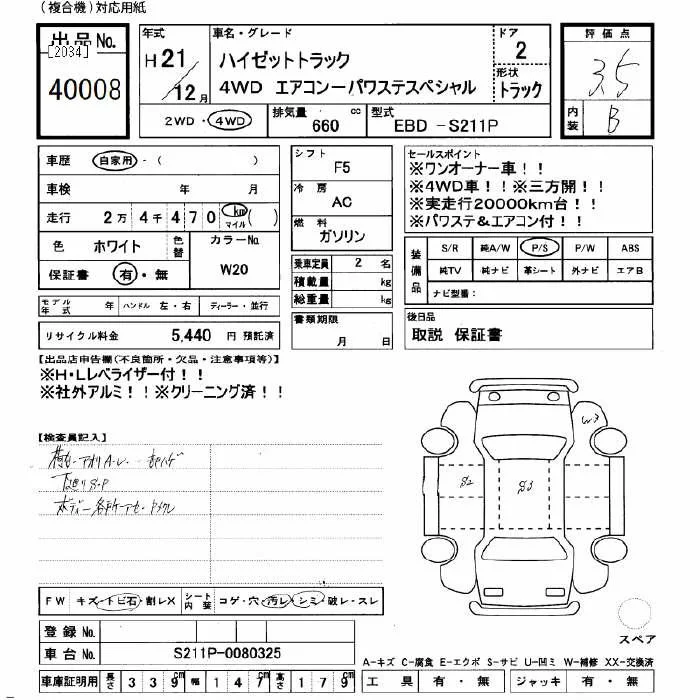 (複合機)対応用紙
出品No.
[2034]
40008
年式
H 21/12月
車名・グレード
ハイゼットトラック
4WD エアコンーパワステスペシャル
ドア
2
形状
トラック
2WD・4WD
排気量 660 cc
型式 EBD -S211P
評価点
3.5
内装
B
車歴 自家用・( )
車検 年 月
走行 2万4千470 km マイル( )
色 ホワイト 色替
カラーNo.
W20
保証書 有・無
モデル年式 年 ハンドル 左・右 ディーラー・並行
リサイクル料金 5,440 円 預託済
シフト F5
冷房 AC
燃料 ガソリン
乗車定員 2 名
積載量 kg
総重量 kg
書類期限
月 日
セールスポイント
※ワンオーナー車!!
※4WD車!!※三方開!!
※実走行20000km台!!
※パワステ&エアコン付!!
装備品
S/R 純A/W P/S P/W ABS
純TV 純ナビ 革シート 外ナビ エアB
ナビ型番:
後日品
取説 保証書
【出品店申告欄(不良箇所・欠品・注意事項等)】
※H・Lレベライザー付!!
※社外アルミ!!※クリーニング済!!
【検査員記入】
下廻りS・P
W3
S2
S3
FW キズ・トビ石・割レX シート内装 コゲ・穴・汚レ・シミ・破レ・スレ
登録No.
車台No. S211P-0080325
車庫証明用 長さ 339cm 幅 147cm 高さ 179cm
スペア
A-キズ C-腐食 E-エクボ S-サビ U-凹ミ W-補修 XX-交換済
工具 有・無 ジャッキ 有・無